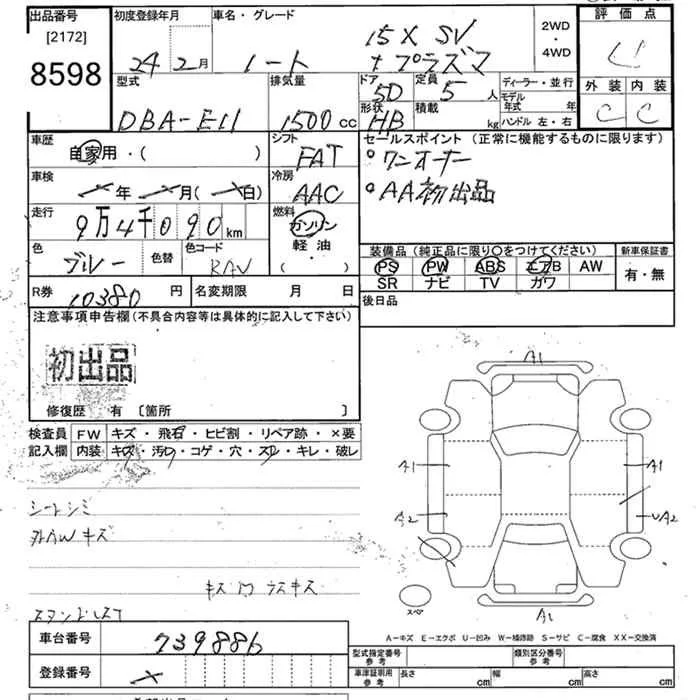 出品番号
[2172]
8598
初度登録年月
24 2月
車名・グレード
ノート
15X SV
+プラズマ
2WD
・
4WD
評価点
外装 内装
C C
型式
DBA-E11
排気量
1500cc
ドア 5D
形状 HB
定員 5人
積載 kg
ディーラー・並行
モデル
年式 年
ハンドル 左・右
車歴
自家用・( )
車検
年 月( 日)
走行
9万4千090km
色
ブルー
色替
色コード
RAV
シフト
FAT
冷房
AAC
燃料
ガソリン
軽油・
( )
セールスポイント(正常に機能するものに限ります)
ワンオーナー
AA初出品
装備品(純正品に限り○をつけてください)
PS PW ABS エアB AW
SR ナビ TV ガワ
新車保証書
有・無
R券 10380円
名変期限 月 日
後日品
注意事項申告欄(不具合内容等は具体的に記入して下さい)
初出品
修復歴 有 〔箇所 〕
検査員
記入欄
FW キズ・飛石・ヒビ割・リペア跡・×要
内装 キズ・汚れ・コゲ・穴・スレ・キレ・破レ
シートシミ
外AWキズ
A1
A1 A1
A2 UA2
A1
スペア
A-キズ E-エクボ U-凹み W-補修跡 S-サビ C-腐食 XX-交換済
車台番号 739886
登録番号
型式指定番号
参考
類別区分番号
参考
車庫証明用
参考
長さ cm 幅 cm 高さ cm